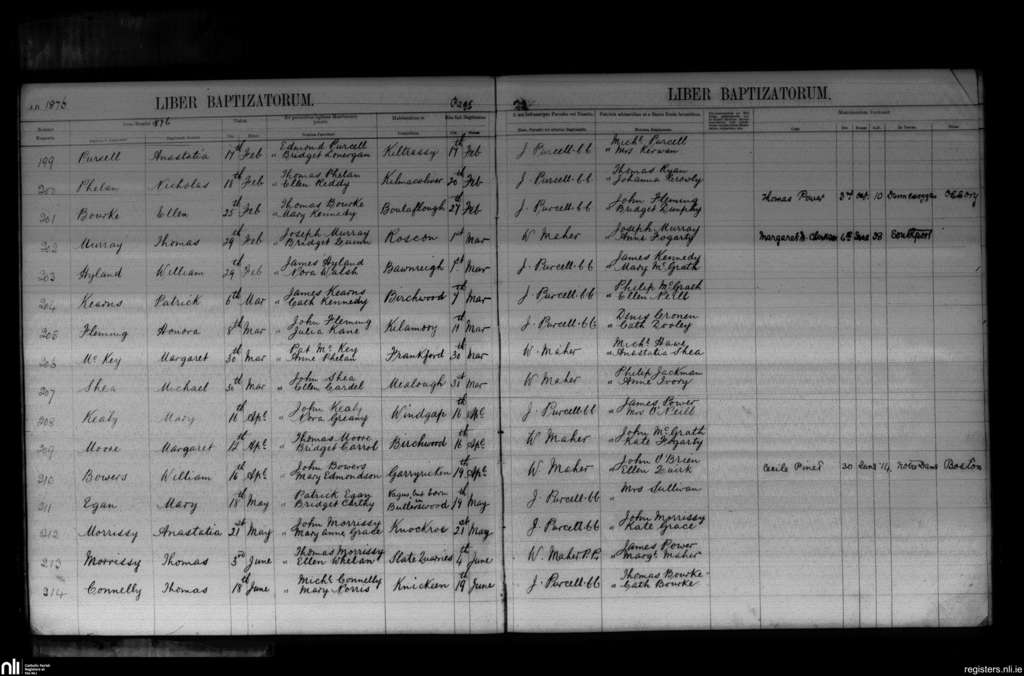 A.D. 1876 LIBER BAPTIZATORUM. Page 22 LIBER BAPTIZATORUM.
1876
199 Pursell Anastatia 17th Feb Edmond Purcell Kiltrassy 17th Feb J. Purcell. CC Michl. Purcell
" Bridget Lonergan " Mrs Kerwan
200 Phelan Nicholas 18th Feb Thomas Phelan Kilmacoliver 20th Feb J. Purcell. CC Thomas Ryan
" Ellen Reddy " Johanna
201 Bourke Ellen 25th Feb Thomas Bourke Boulaflough 27th Feb J. Purcell. CC John Fleming Thomas Power 3rd 10
" Mary Kennedy " Bridget Dunphy
202 Murray Thomas 29th Feb Joseph Murray Roscon 1st Mar W Maher Joseph Murray Margaret 6th June 28 Southport
" Bridget " Anne Fogarty
203 Hyland William 29th Feb James Hyland Bawnreigh 1st Mar J. Purcell. CC James Kennedy
" Nora Walsh " Mary McGrath
204 Kearns Patrick 6th Mar James Kearns Birchwood 7th Mar J. Purcell. CC Philip McGrath
" Cath Kennedy " Ellen Neill
205 Fleming Honora 8th Mar John Fleming Kilamory 11th Mar J. Purcell. CC Denis Cronen
" Julia Kane " Cath Dooley
206 McKey Margaret 30th Mar Pat McKey Frankford 30th Mar W. Maher Michl. Hawe
" Anne Phelan " Anastatia Shea
207 Shea Michael 30th Mar John Shea Mealough 31st Mar W Maher Philip Jackman
" Ellen Cardel " Anne Ivory
208 Kealy Mary 16th Apl John Kealy Windgap 16th Apl J. Purcell. CC James Power
" Nora Greany " Mrs O'Neill
209 Moore Margaret 12th Apl Thomas Moore Birchwood 16th Apl W Maher John McGrath
" Bridget Carrol " Kate Fogarty
210 Bowers William 16th Apl John Bowers Garryricken 19th Apl W Maher John O'Breen Cecile 30 '14 Notre Dame Boston
" Mary Edmondson " Ellen Quirk
211 Egan Mary 18th May Patrick Egan Vagus, but born 19th May J. Purcell. CC Mrs Sullivan
" Bridget Carthy in Butlerswood "
212 Morrissy Anastatia 21st May John Morrissy Knockroe 21st May J. Purcell. CC John Morrissy
" Mary Anne Grace " Kate Grace
213 Morrissy Thomas 3rd June Thomas Morrissy Slate Quarries 4th June W. Maher P.P. James Power
" Ellen Whelan " Margt. Maher
214 Connelly Thomas 18th June Michl. Connelly Knickeen 19th June J. Purcell. CC Thomas Bourke
" Mary Norris " Cath Bourke
nli Catholic Parish Registers at the NLI
registers.nli.ie